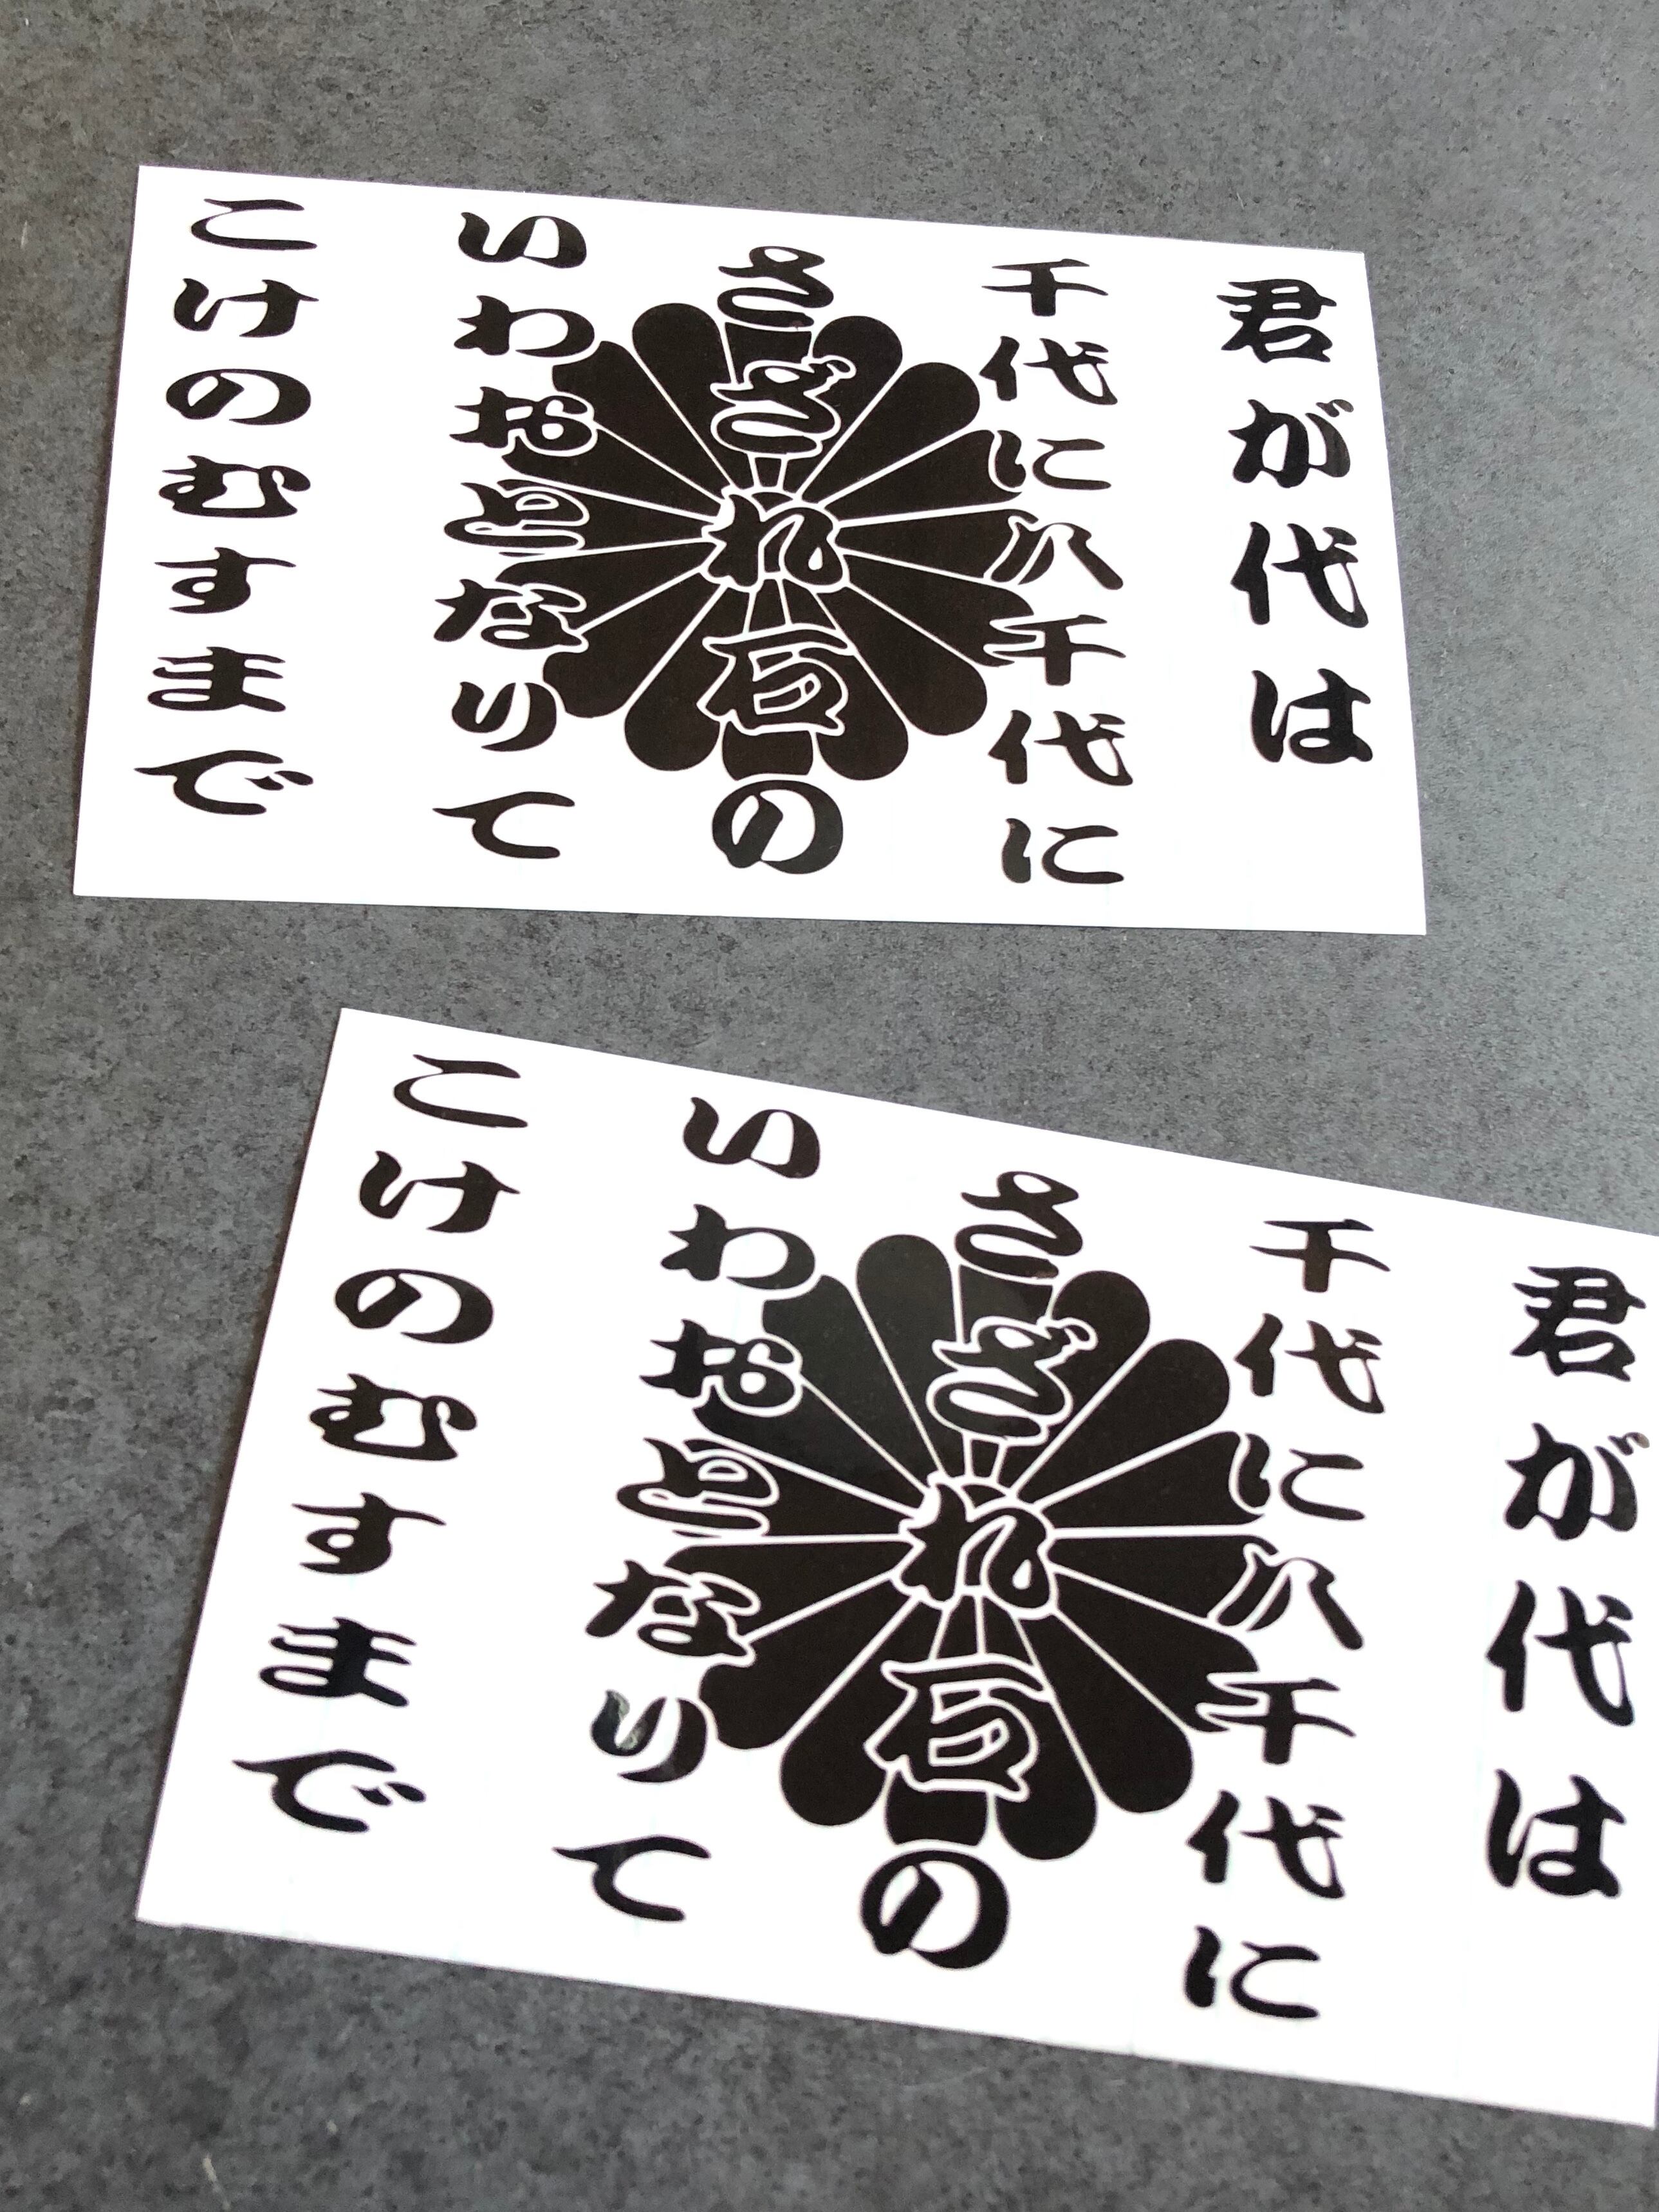 君が代は
千代に八千代に
さざれ石の
いわおとなりて
こけのむすまで
君が代は
千代に八千代に
さざれ石の
いわおとなりて
こけのむすまで